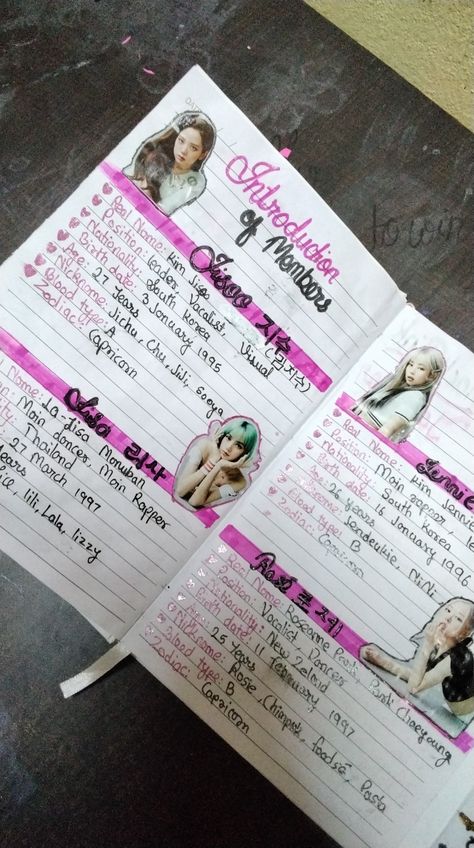 Introduction
of Members
Jisoo 지수 (김지수)
Real Name: Kim Jisoo
Position: Leader, Vocalist, Visual
Nationality: South Korea
Birth date: 3 January 1995
Age: 27 Years
Nickname: Jichu, Chu, Jili, Sooya
Blood type: A
Zodiac: Capricorn
Lisa 리사
Name: La-Lisa Monoban
Main dancer, Main Rapper
Thailand
27 March 1997
Years
Lili, Lala, lizzy
Jennie
Real Name: Kim Jennie
Position: Main rapper
Nationality: South Korea
Birth date: 16 January 1996
Age: 26 Years
Jendeukie, NiNi
Blood type: B
Zodiac: Capricorn
Real Name: Roseanne Park, Park Chaeyoung
Position: Vocalist, Dancer
Nationality: New Zeland
Birth date: 11 February 1997
Age: 25 Years
Nickname: Rosie, Chipmunk, Pasta
Blood type: B
Zodiac: Capricorn
town